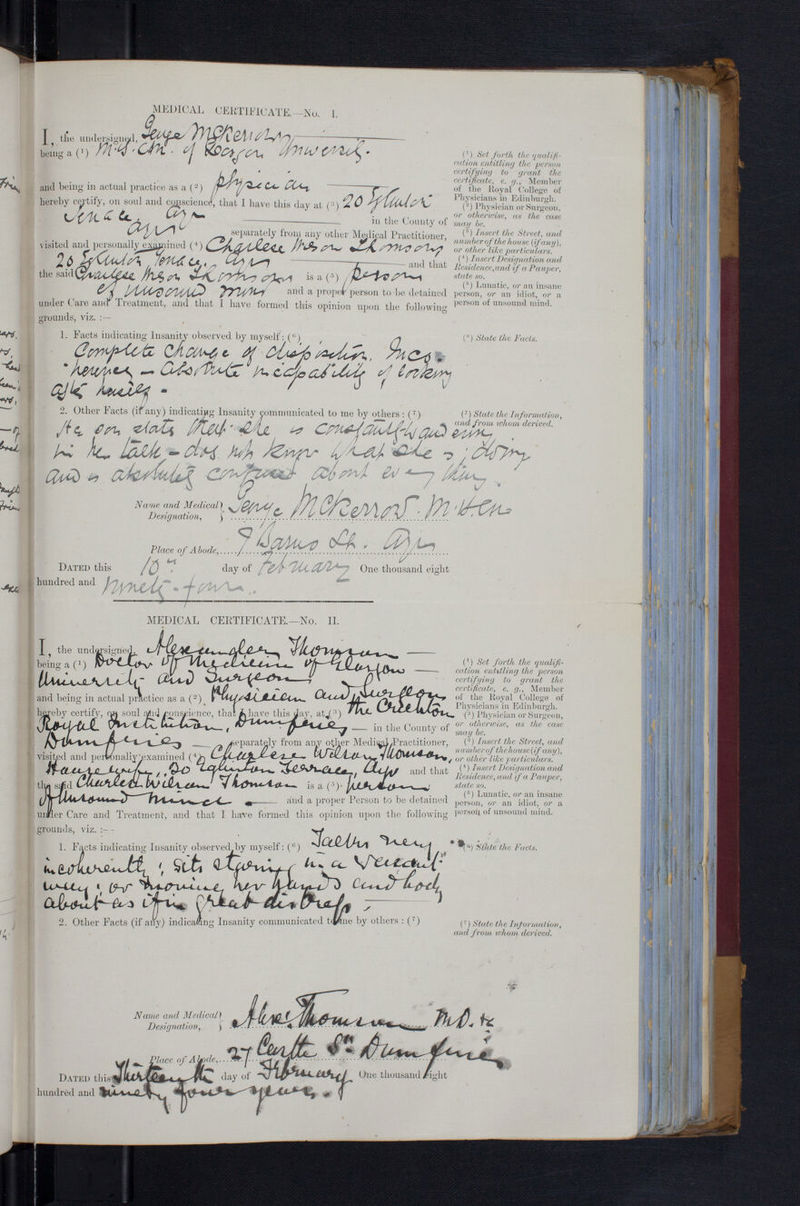 MEDICAL CERTIFICATE.—No. I.
I, the undersigned, George McKerrow
being a (¹) M.D. C.M. of Glasgow University.
and being in actual practice as a (²) Physician
hereby certify, on soul and conscience, that I have this day at (³) 20 Eglinton
Terrace, Ayr in the County of
Ayr separately from any other Medical Practitioner,
visited and personally examined (⁴) Thomson
20 Eglinton Terrace, Ayr and that
the said Thomson is a (⁵) person
of unsound mind and a proper person to be detained
under Care and Treatment, and that I have formed this opinion upon the following
grounds, viz. :—
1. Facts indicating Insanity observed by myself: (⁶)
Complete change of disposition.
— absolute incapability of looking
after herself -
2. Other Facts (if any) indicating Insanity communicated to me by others: (⁷)
states that she is constantly
in her talk - does not know what she is doing
and is absolutely confused about every thing.
Name and Medical Designation, George McKerrow. M.D. C.M.
Place of Abode, 7 Barns St. Ayr
DATED this 10th day of February One thousand eight
hundred and ninety-four.
(¹) Set forth the qualifi-
cation entitling the person
certifying to grant the
certificate, e. g., Member
of the Royal College of
Physicians in Edinburgh.
(²) Physician or Surgeon,
or otherwise, as the case
may be.
(³) Insert the Street, and
number of the house (if any),
or other like particulars.
(⁴) Insert Designation and
Residence, and if a Pauper,
state so.
(⁵) Lunatic, or an insane
person, or an idiot, or a
person of unsound mind.
(⁶) State the Facts.
(⁷) State the Information,
and from whom derived.
MEDICAL CERTIFICATE.—No. II.
I, the undersigned, Alexander Thomson
being a (¹) Doctor of Medicine of Glasgow
University and Surgeon
and being in actual practice as a (²) Physician and Surgeon
hereby certify, on soul and conscience, that I have this day, at (³) the Crichton
Royal Institution, Dumfries in the County of
Dumfries separately from any other Medical Practitioner,
visited and personally examined (⁴) Wilson Thomson,
Housewife, 20 Eglinton Terrace, Ayr and that
the said Wilson Thomson is a (⁵) person
of unsound mind and a proper Person to be detained
under Care and Treatment, and that I have formed this opinion upon the following
grounds, viz. :—
1. Facts indicating Insanity observed by myself: (⁶) Talks very
incoherently; sits staring in a vacant
way; or moving her hands and body
about as if in great distress
2. Other Facts (if any) indicating Insanity communicated to me by others : (⁷)
Name and Medical Designation, Alexr. Thomson M.D. &c
Place of Abode, 27 Castle St. Dumfries
DATED this Thirteenth day of February One thousand eight
hundred and ninety four years.
(¹) Set forth the qualifi-
cation entitling the person
certifying to grant the
certificate, e. g., Member
of the Royal College of
Physicians in Edinburgh.
(²) Physician or Surgeon,
or otherwise, as the case
may be.
(³) Insert the Street, and
number of the house (if any),
or other like particulars.
(⁴) Insert Designation and
Residence, and if a Pauper,
state so.
(⁵) Lunatic, or an insane
person, or an idiot, or a
person of unsound mind.
(⁶) State the Facts.
(⁷) State the Information,
and from whom derived.